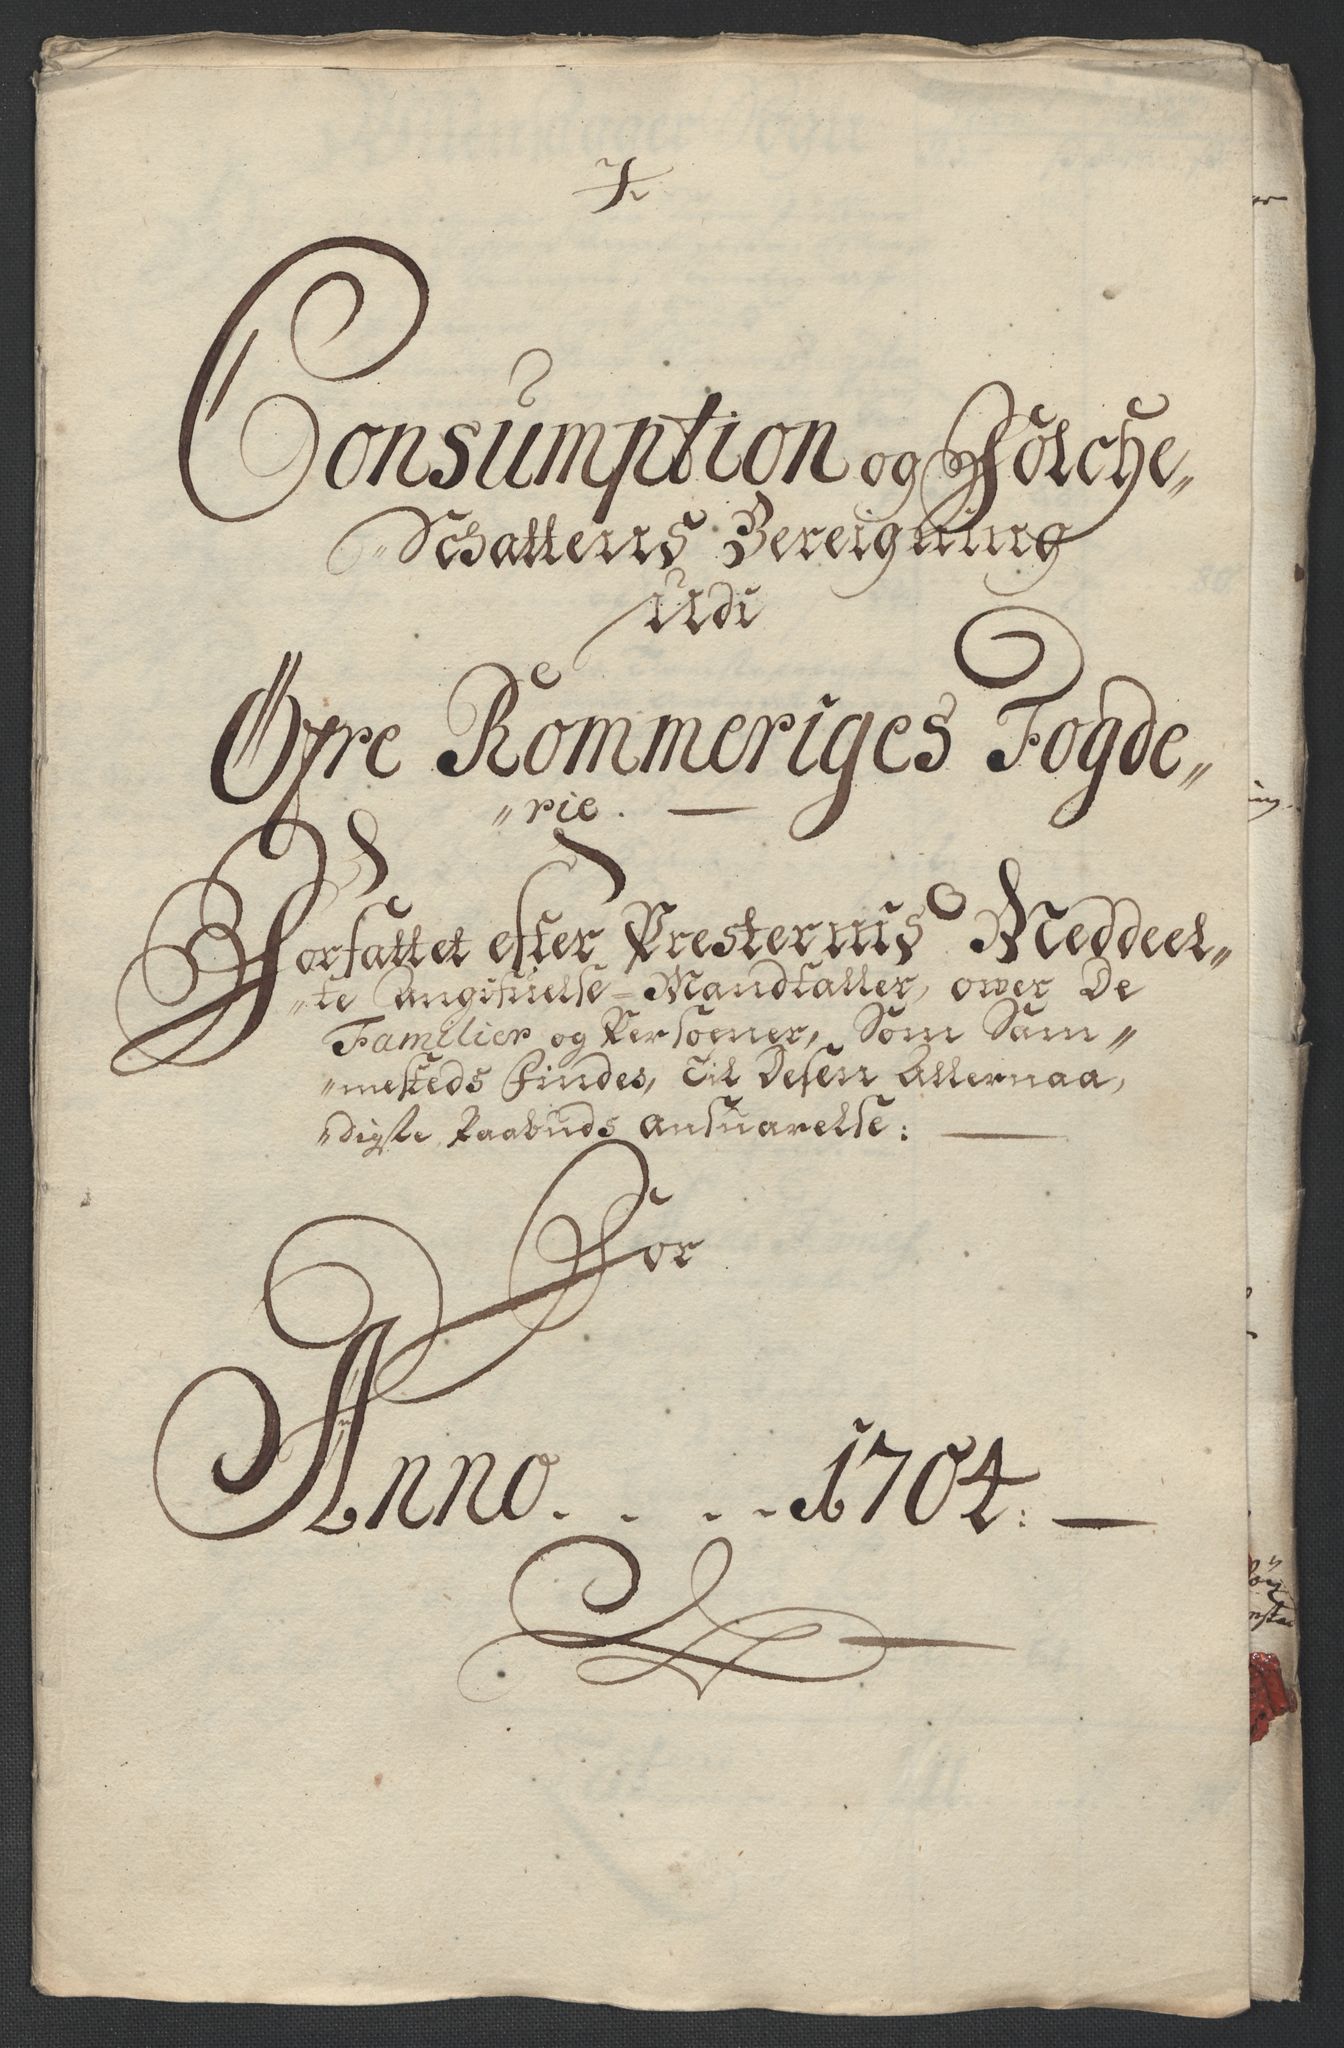 Consumption og Folche„
„Schattens Bereigning
Udi
Øfre Rommeriges Fogde„
„rie.
Forfattet efter Presternis Meddeel„
„te Angifuelse=Mandtaller, ower De
Familier og Persoener, Som Sam„
„mesteds Findes, Til Desen Allernaa,
„digste Paabuds Ansuarelse:
For
Anno . . . . 1704: